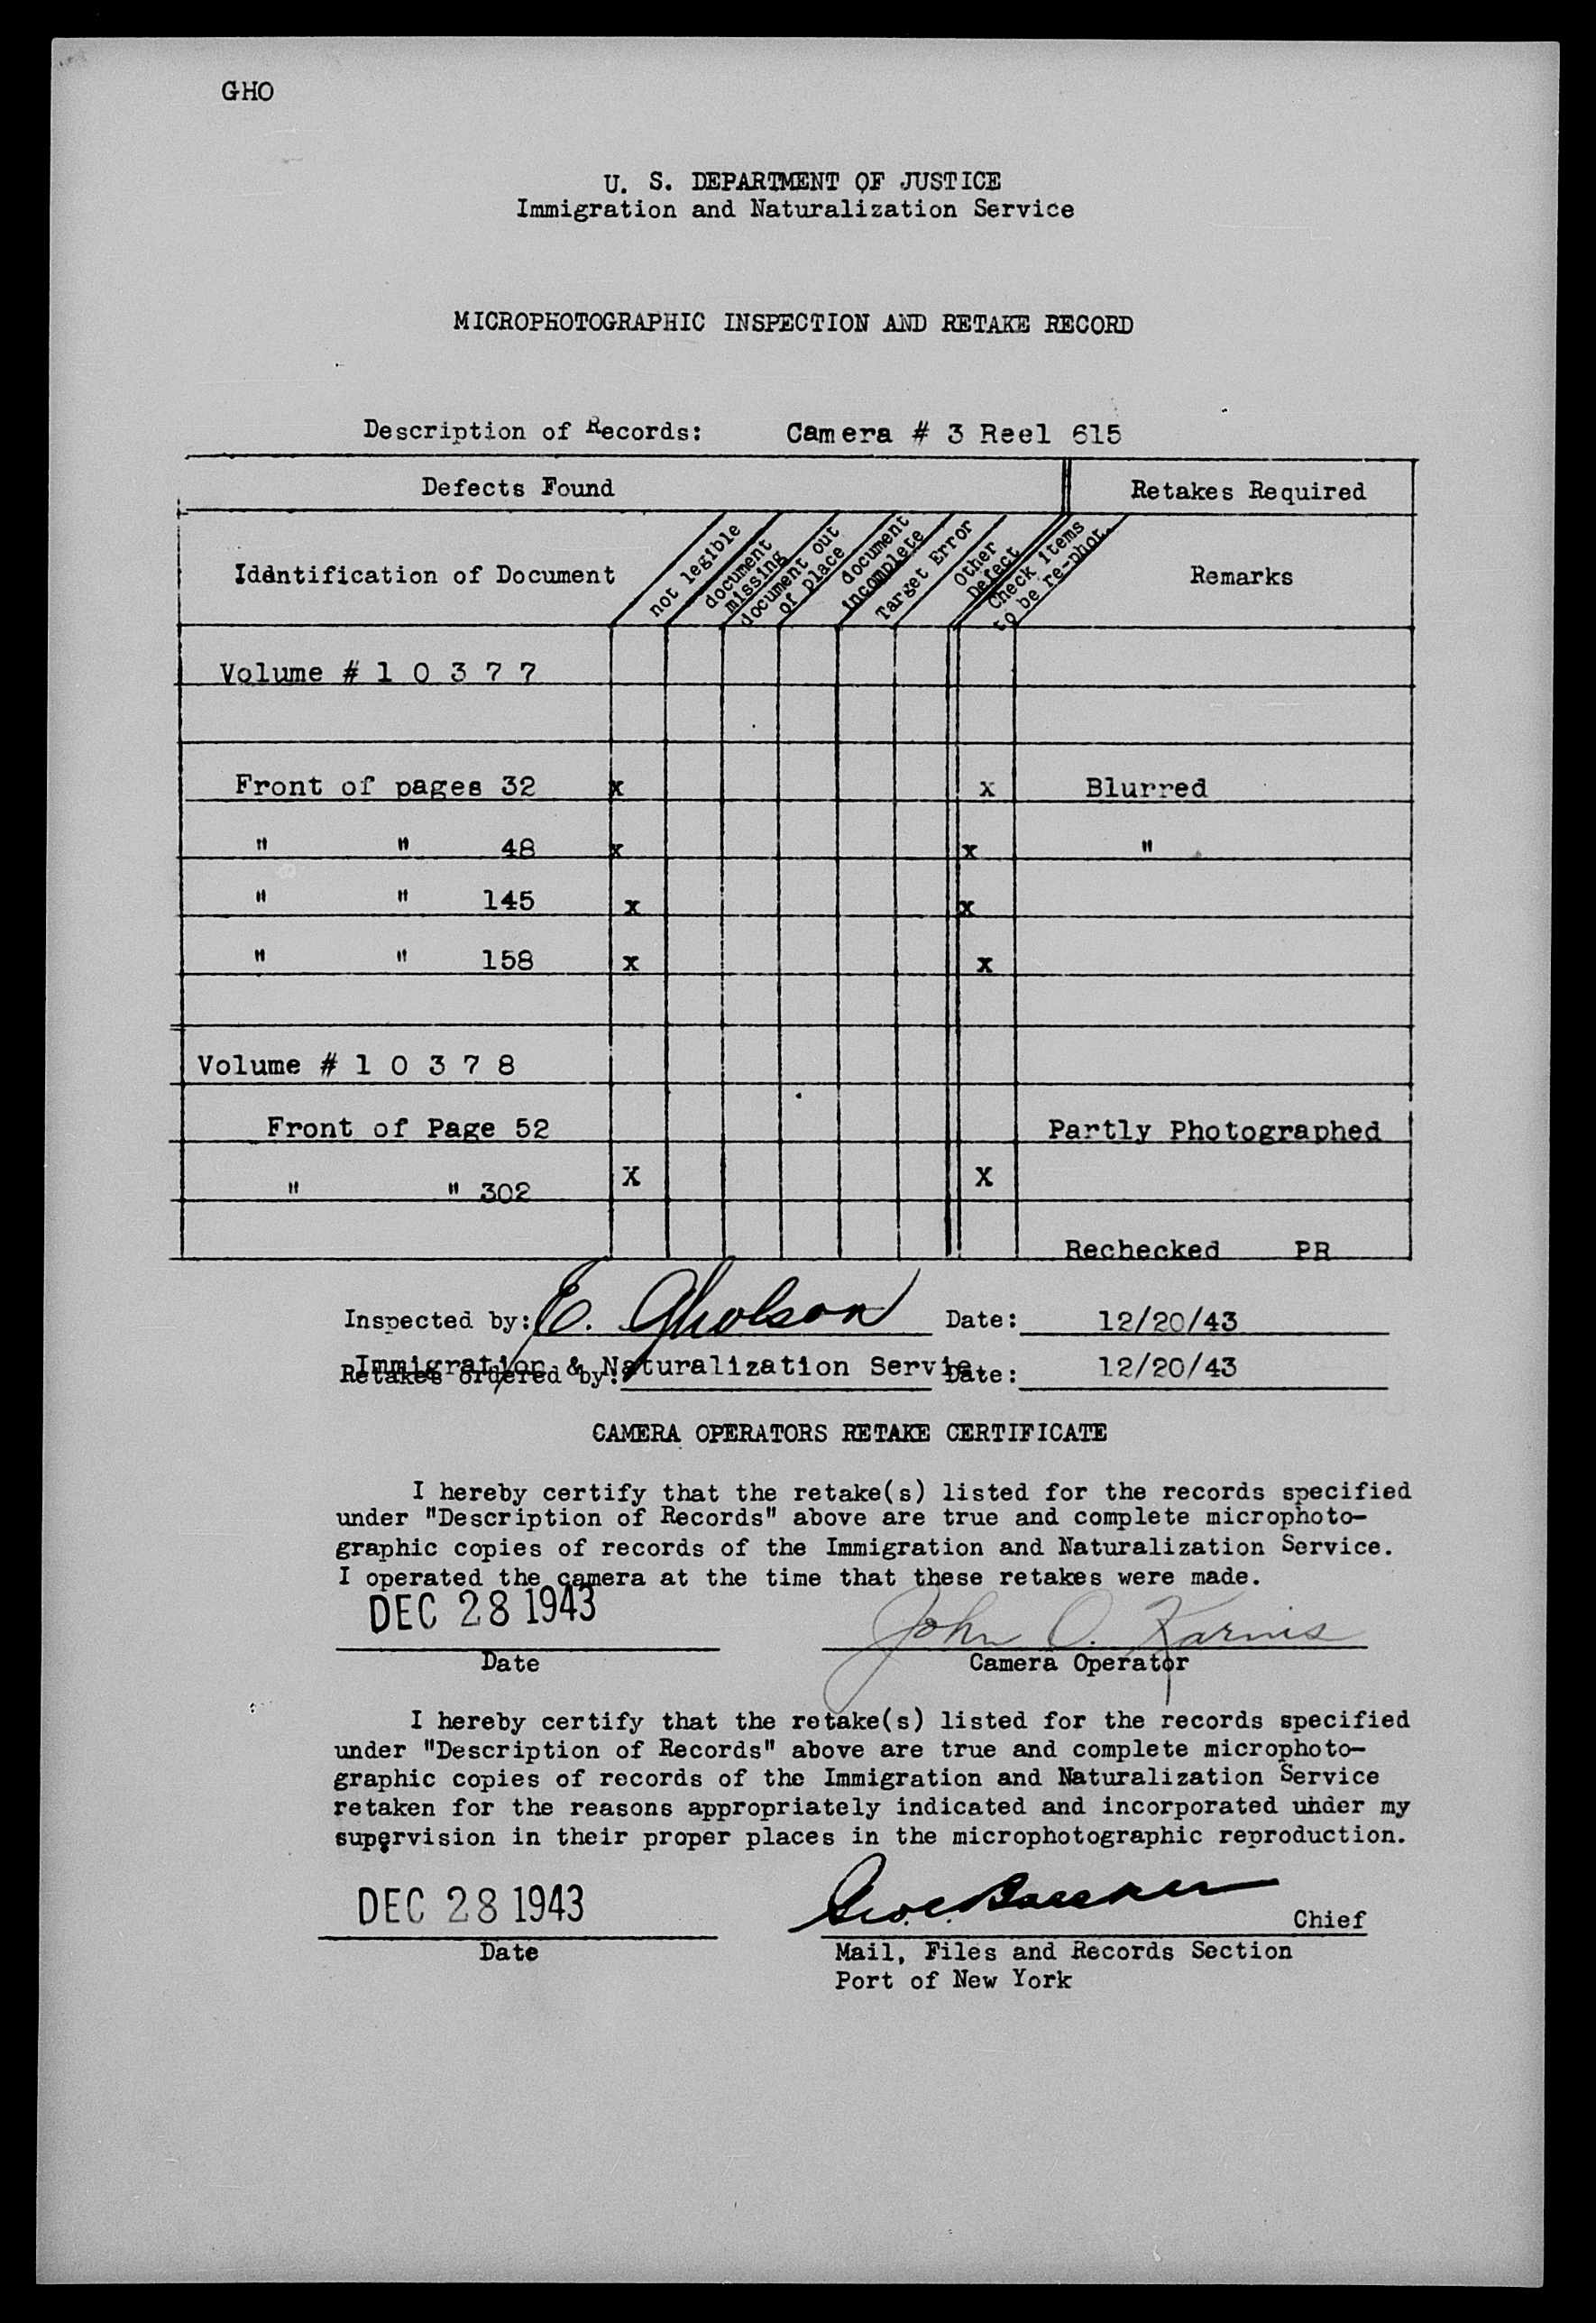 GHO
U. S. DEPARTMENT OF JUSTICE
Immigration and Naturalization Service
MICROPHOTOGRAPHIC INSPECTION AND RETAKE RECORD
Description of Records: Camera # 3 Reel 615
Defects Found Retakes Required
Identification of Document not legible document missing document out of place document incomplete Target Error Other Defect Check items to be re-phot. Remarks
Volume # 1 0 3 7 7
Front of pages 32 x x Blurred
" " 48 x x "
" " 145 x x
" " 158 x x
Volume # 1 0 3 7 8
Front of Page 52 Partly Photographed
" " 302 X X
Rechecked PR
Inspected by: E. Gholson Date: 12/20/43
Immigration & Naturalization Servic
Retakes ordered by: Date: 12/20/43
CAMERA OPERATORS RETAKE CERTIFICATE
I hereby certify that the retake(s) listed for the records specified
under "Description of Records" above are true and complete microphoto-
graphic copies of records of the Immigration and Naturalization Service.
I operated the camera at the time that these retakes were made.
DEC 28 1943 John O. Karnis
Date Camera Operator
I hereby certify that the retake(s) listed for the records specified
under "Description of Records" above are true and complete microphoto-
graphic copies of records of the Immigration and Naturalization Service
retaken for the reasons appropriately indicated and incorporated under my
supervision in their proper places in the microphotographic reproduction.
DEC 28 1943 Chief
Date Mail, Files and Records Section
Port of New York